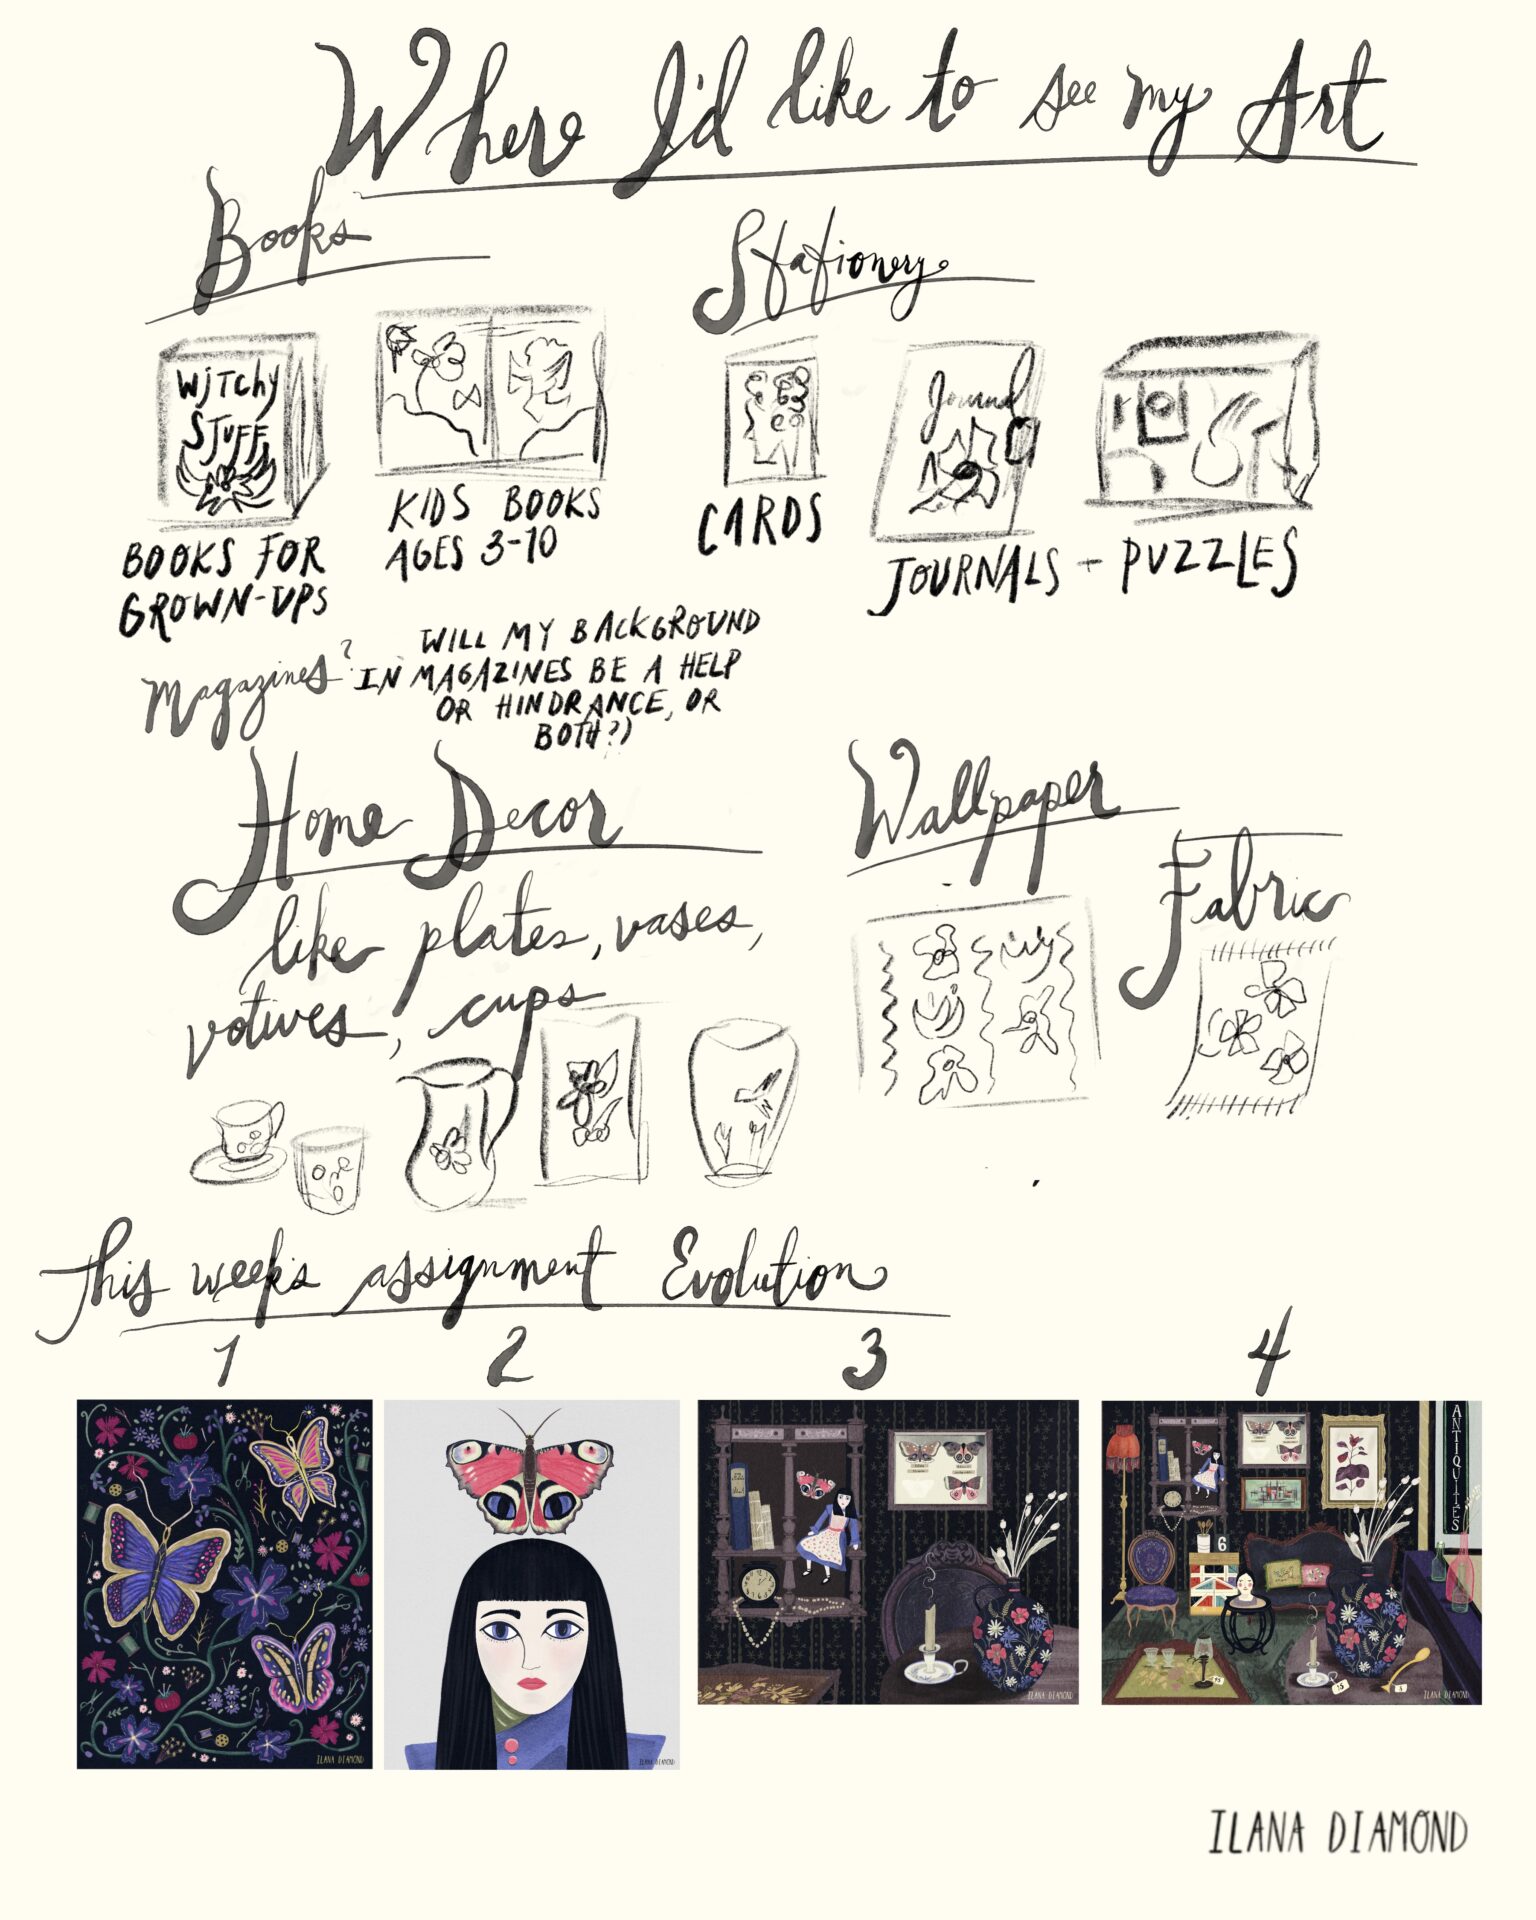 Where I'd like to see my Art
Books
Stationery
WiTCHy
STUFF
Journal
BOOKS FOR
GROWN-UPS
KIDS BOOKS
AGES 3-10
CARDS
JOURNALS + PUZZLES
Magazines?
WILL MY BACKGROUND
IN MAGAZINES BE A HELP
OR HINDRANCE, OR
BOTH?)
Home Decor
like plates, vases,
votives, cups
Wallpaper
Fabric
This week's assignment Evolution
1
2
3
4
ILANA DIAMOND
ILANA DIAMOND
ILANA DIAMOND
ANTIQUITIES
6
ILANA DIAMOND
ILANA DIAMOND